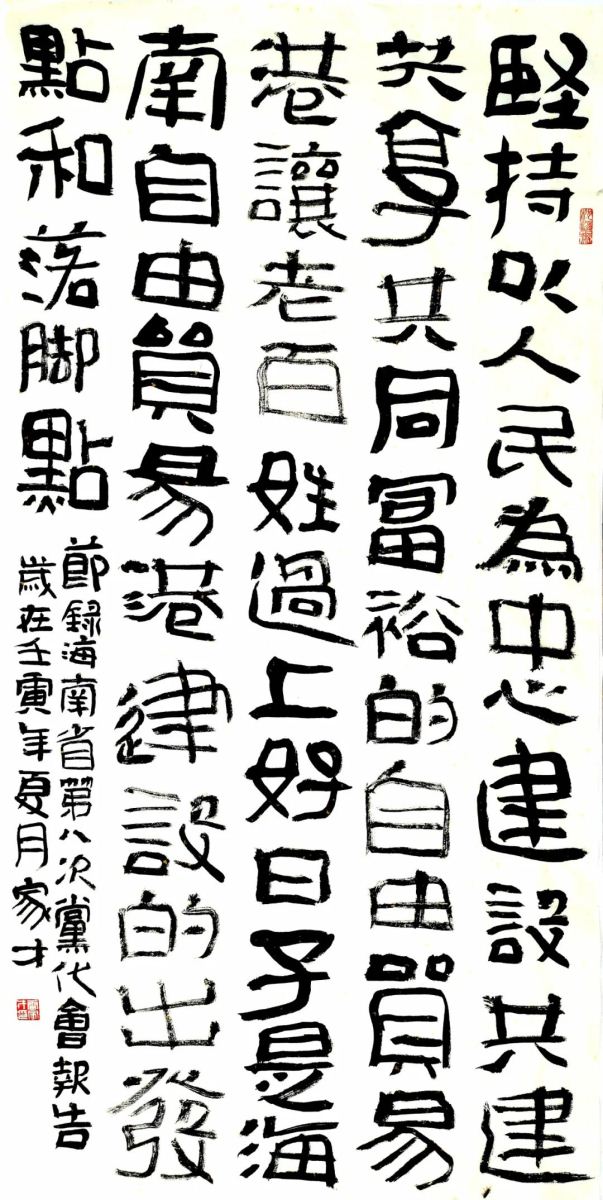 堅持以人民為中心建設共建
共享共同富裕的自由貿易
港讓老百姓過上好日子是海
南自由貿易港建設的出發
點和落脚點
節錄海南省第八次黨代會報告
歲在壬寅年夏月家才